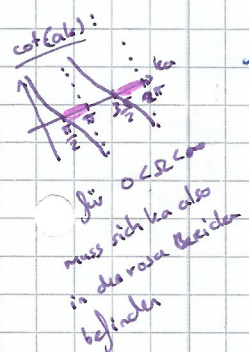 cot(ak):
ka
π/2 π 3/2 π 2π
für 0<Ω<∞
muss sich ka also
in den rosa Bereichen
befinden